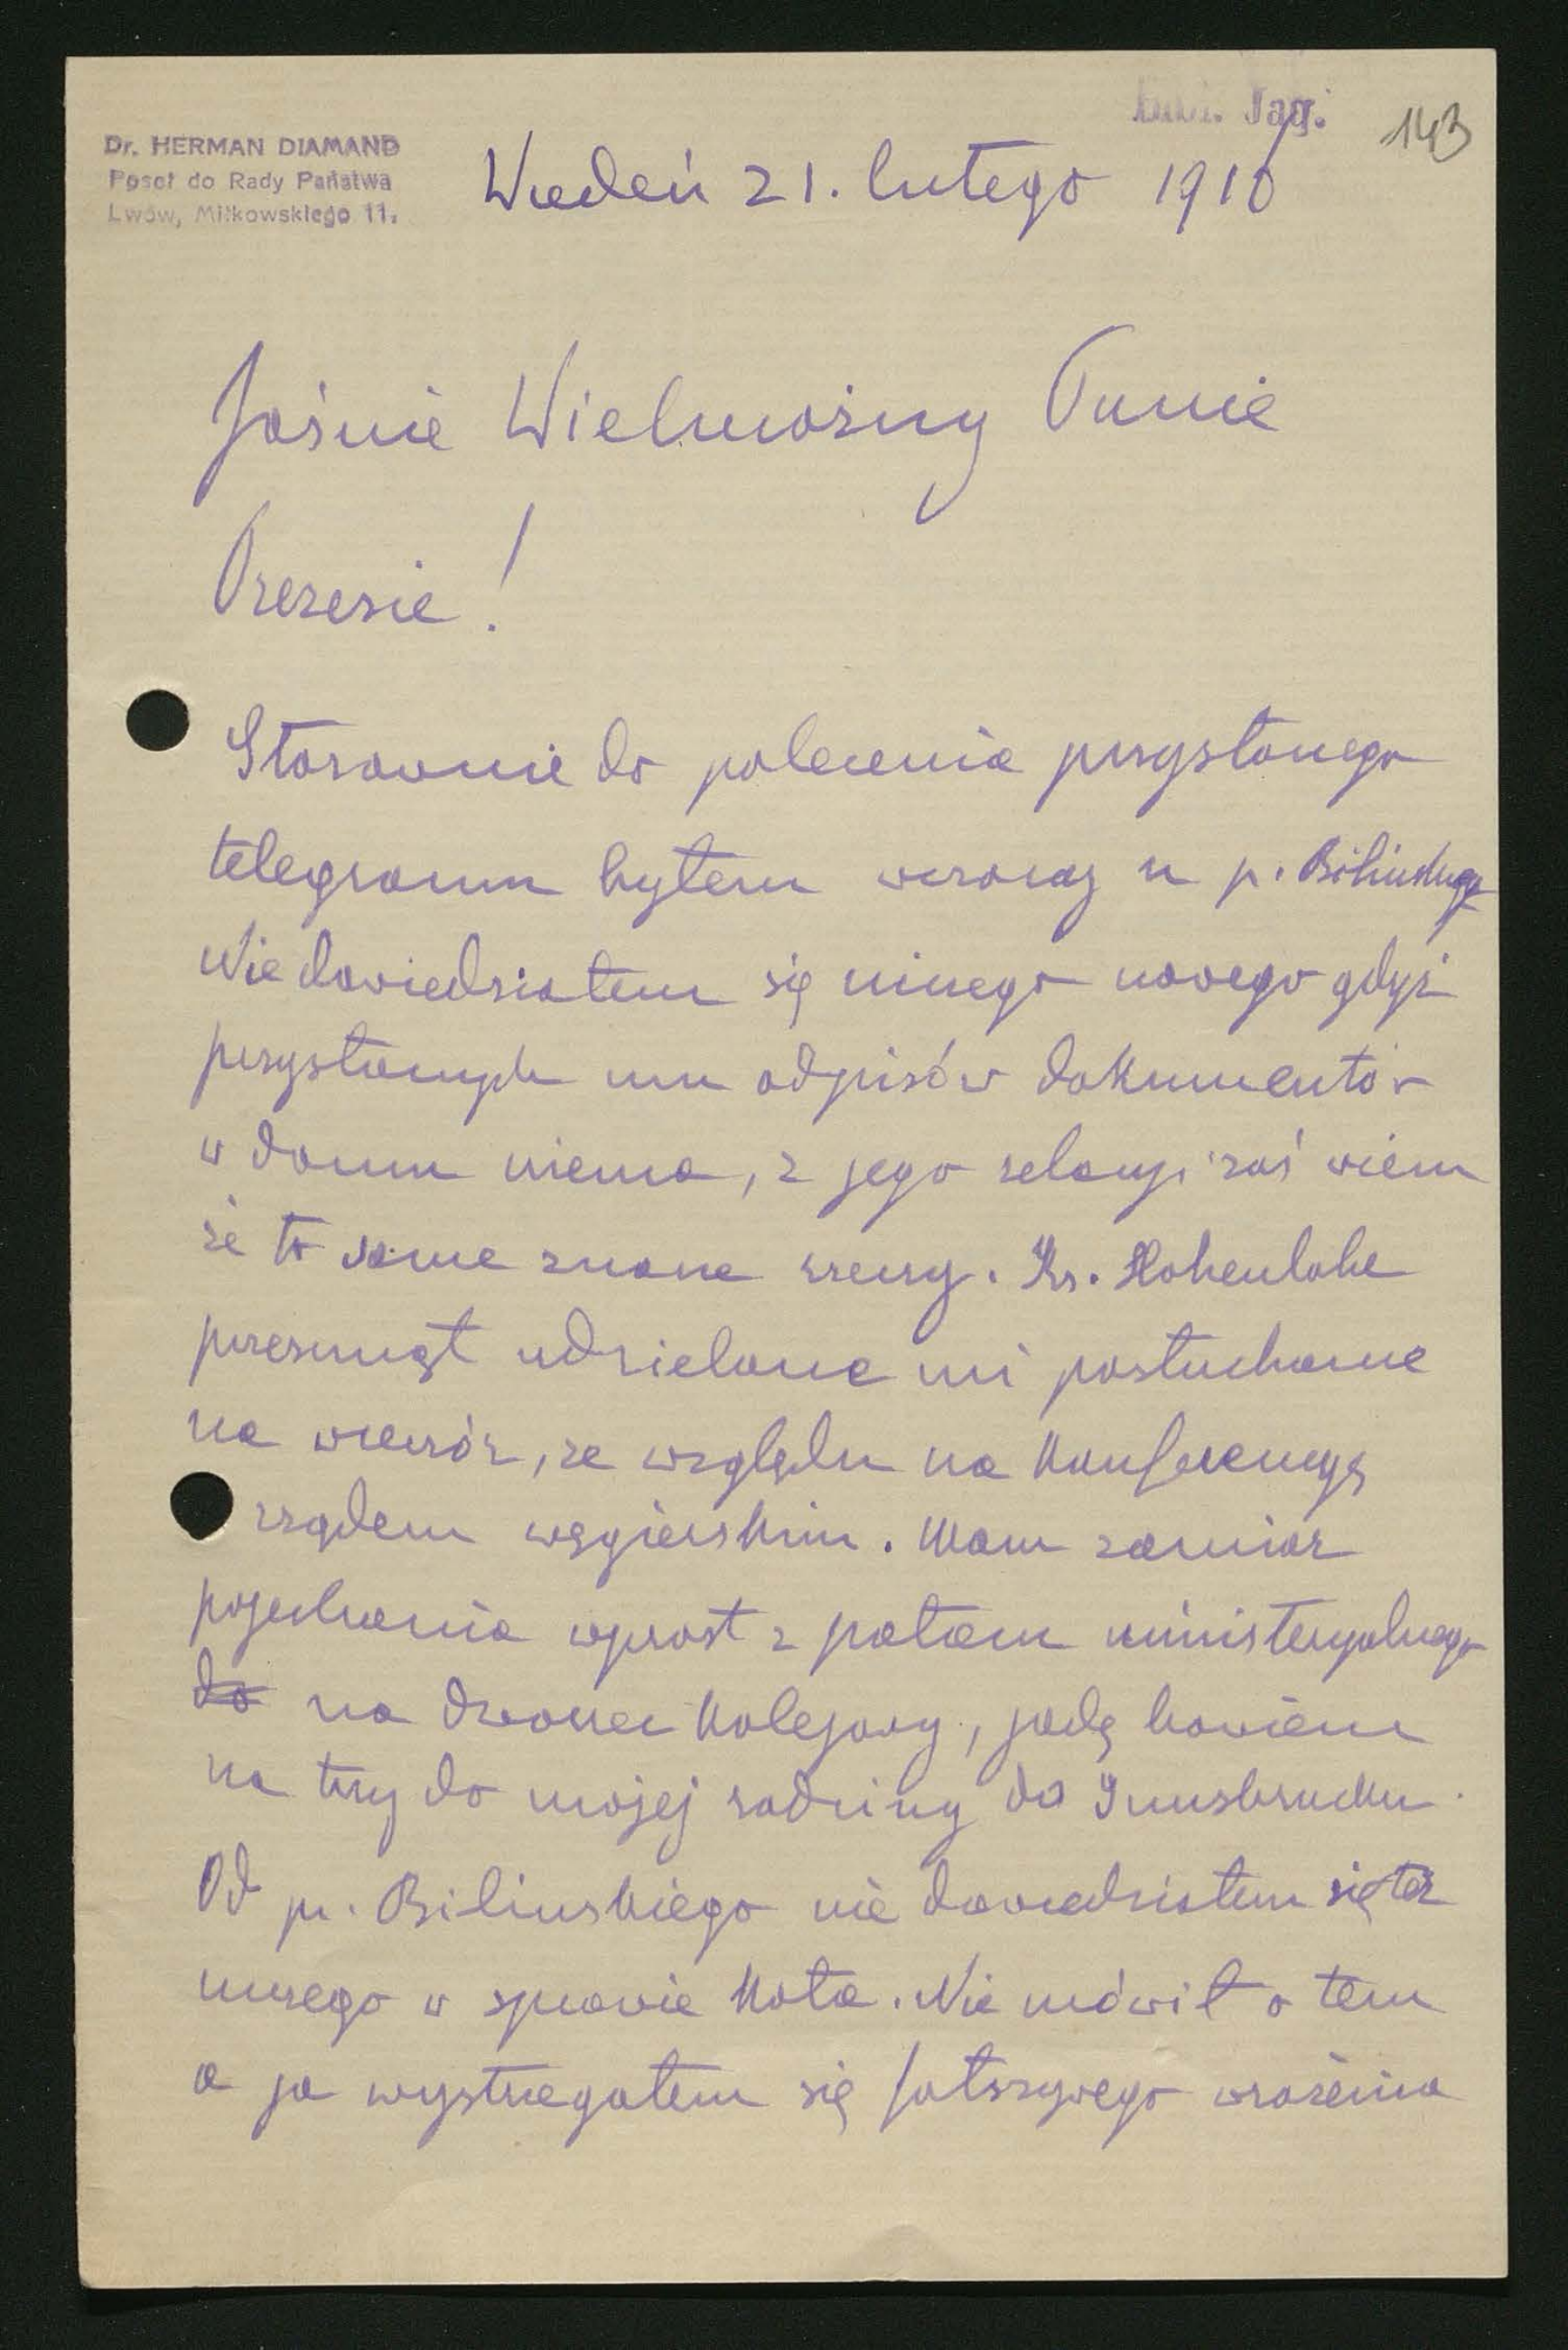 Bibl. Jag.
143
Dr. HERMAN DIAMAND
Poseł do Rady Państwa
Lwów, Miłkowskiego 11.
Wiedeń 21. lutego 1916
Jaśnie Wielmożny Panie
Prezesie!
Stosownie do polecenia przysłanego
telegramu byłem wczoraj u p. Bilińskiego
Nie dowiedziałem się niczego nowego gdyż
przysłanych mu odpisów dokumentów
w domu niema, z jego relacyi zaś wiem
że to same znane rzeczy. Ks. Hohenlohe
przesunął udzielone mi posłuchanie
na wieczór, ze względu na konferencyę
z rządem węgierskim. Mam zamiar
pojechania wprost z pałacu ministeryalnego
do na dworzec kolejowy, jadę bowiem
na trzy do mojej rodziny do Innsbrucku.
Od p. Bilinskiego nie dowiedziałem się też
niczego w sprawie Kota. Nie mówił o tem
a ja wystrzegałem się fałszywego wrażenia